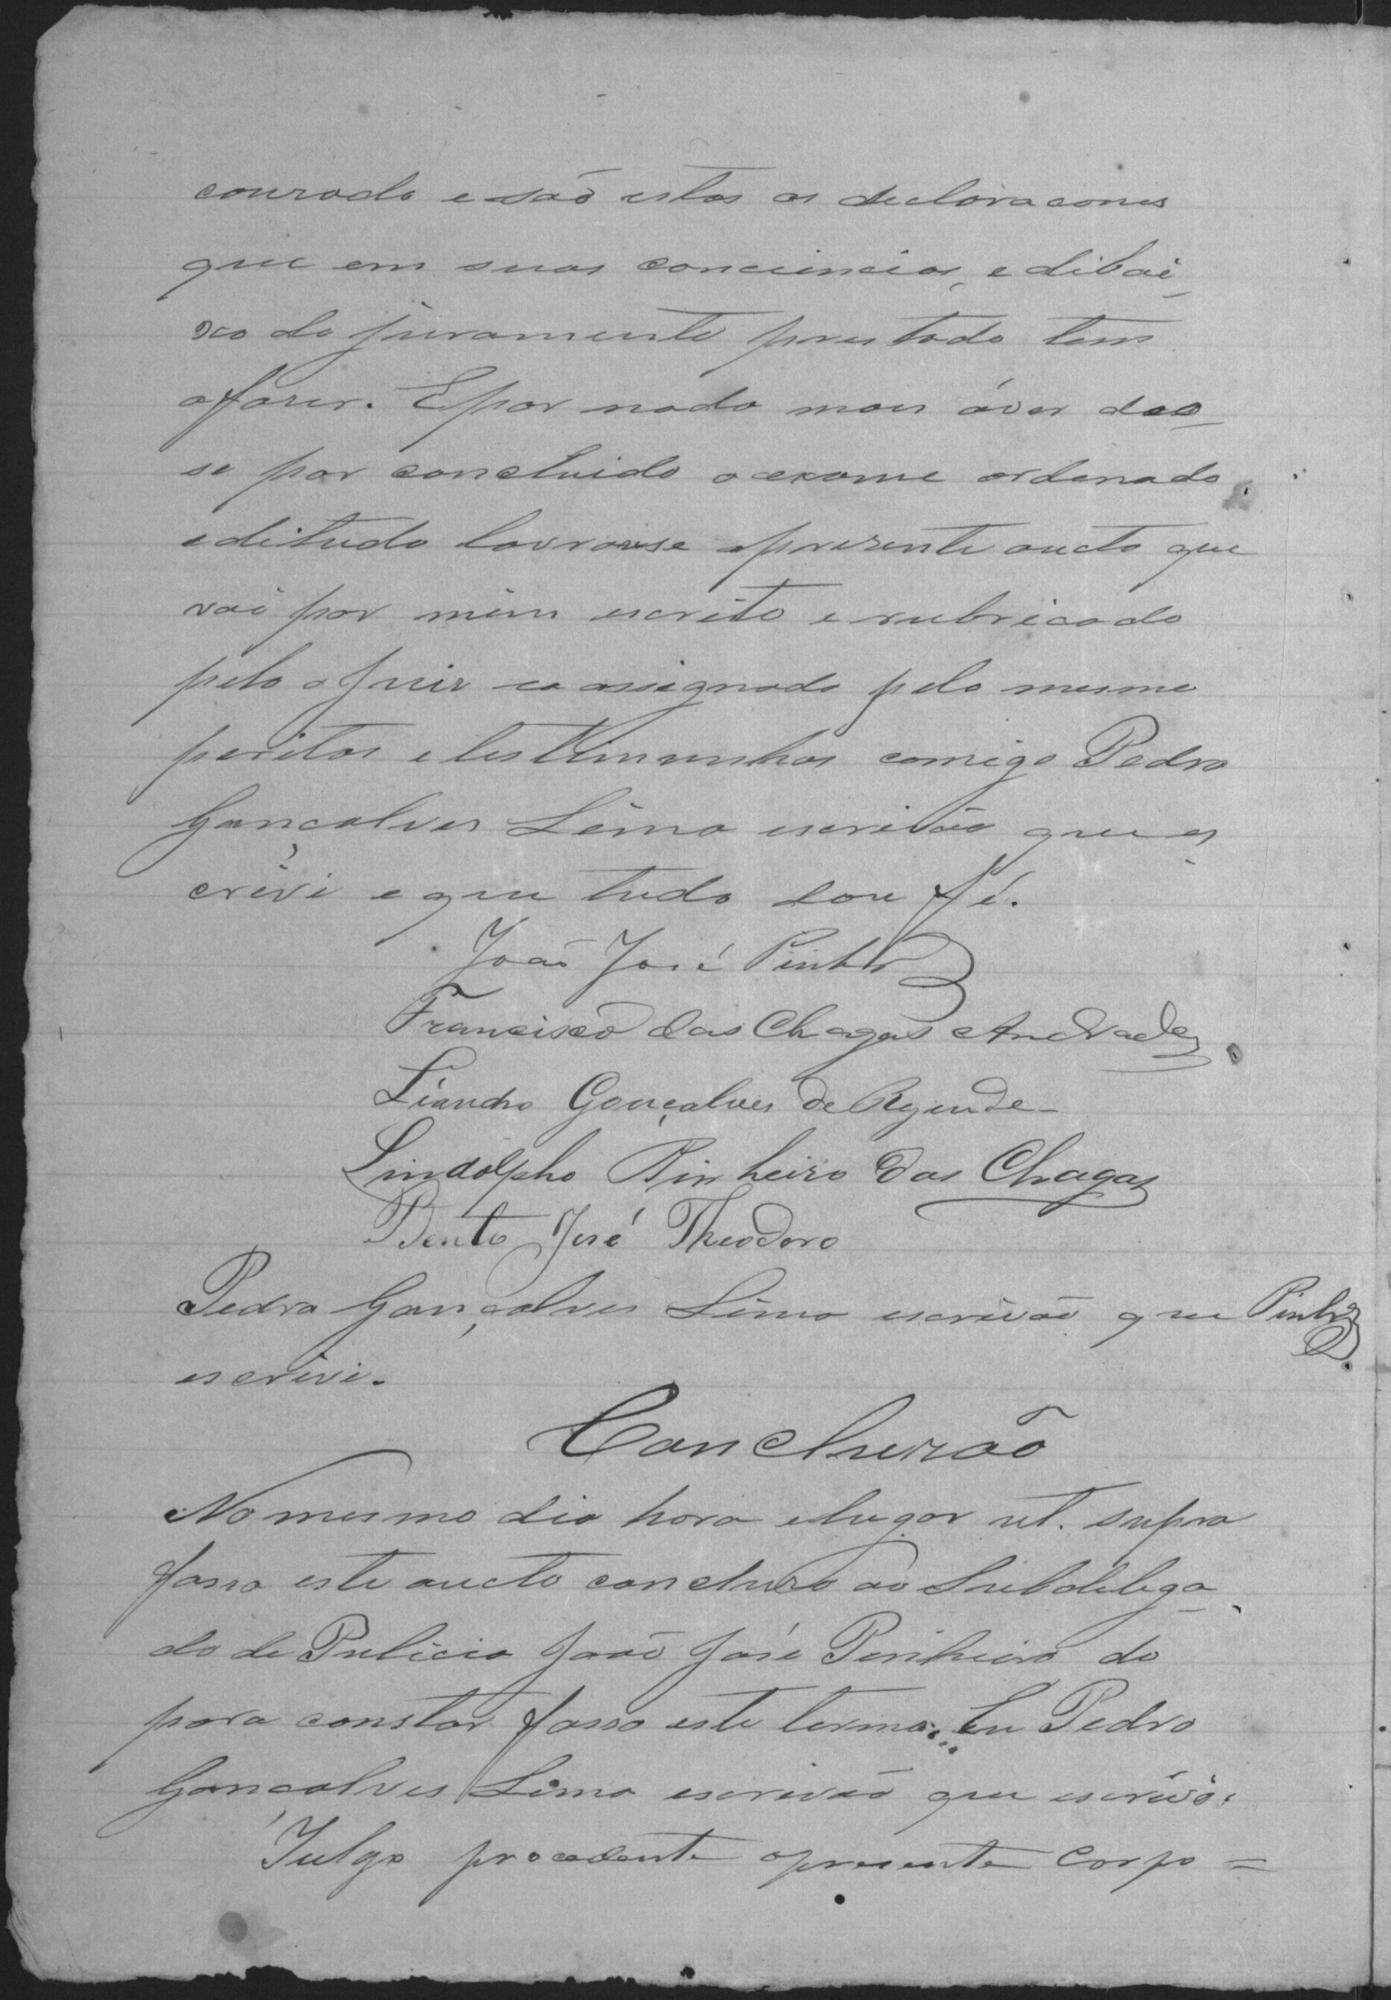 courado e são estas as declaracones
que em suas conciencias, e dibai_
xo do juramento prestado tem
a faser. E por nada mais áver deo_
se por concluido o exame ordenado
e ditudo lavrouse o prezente aucto que
vai por mim escrito e rubricado
pelo o Juiz e assignado pelo mesmo
peritos e testimunhas comigo Pedro
Gonçalves Lima escrivão que es_
crivi e que tudo dou fé.
João José Pinhro
Francisco das Chagas Andrade
Liandro Gonçalves de Resende_
Lindolpho Pinheiro das Chagas
Bento José Theodoro
Pedro Gonçalves Lima escrivão que Pinhro
escrivi.
Concluzão
No mesmo dia hora e lugar ut. supra
fasso este aucto concluzo ao Subdelega_
do de Pulicia João José Pinheiro do
para constar fasso este termo... Eu Pedro
Gonçalves Lima escrivão que escrivi.
Julgo procedente o presente corpo =